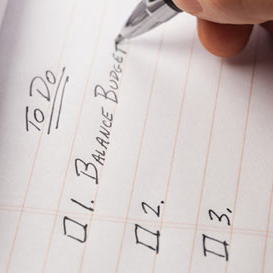 To Do
1. Balance Budget
2.
3.